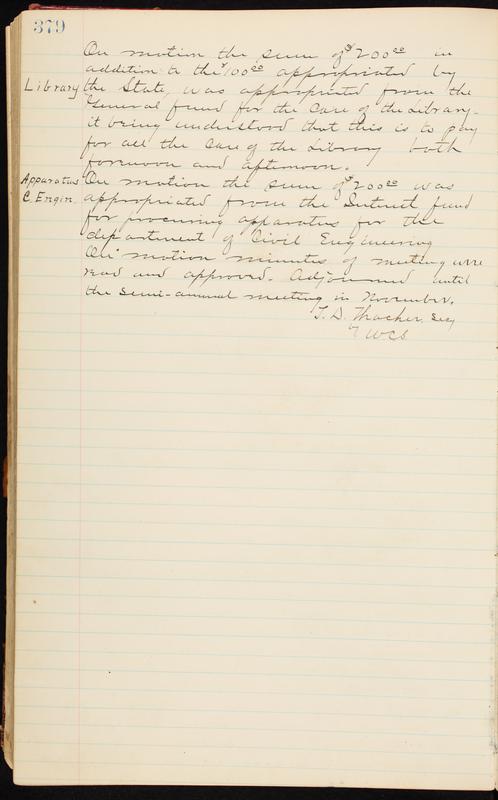 379
On motion the sum of $200.00 in
addition to the $100.00 appropriated by
Library the State, was appropriated from the
General fund for the Care of the Library.
it being understood that this is to pay
for all the Care of the Library both
forenoon and afternoon.
Apparatus On motion the sum of $200.00 was
C. Engin. appropriated from the Interest fund
for procuring apparatus for the
department of Civil Engineering
On motion minutes of meeting were
read and approved. Adjourned until
the semi-annual meeting in November.
T. D. Thacher, Secy
by WCS